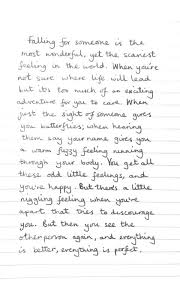 Falling for someone is the
most wonderful, yet the scariest
feeling in the world. When you're
not sure where life will lead
but its too much of an exciting
adventure for you to care. When
just the sight of someone gives
you butterflies; when hearing
them say your name gives you
a warm fuzzy feeling running
through your body. You get all
these odd little feelings, and
you're happy. But theres a little
niggling feeling when you're
apart that tries to discourage
you. But then you see the
other person again, and everything
is better, everything is perfect.